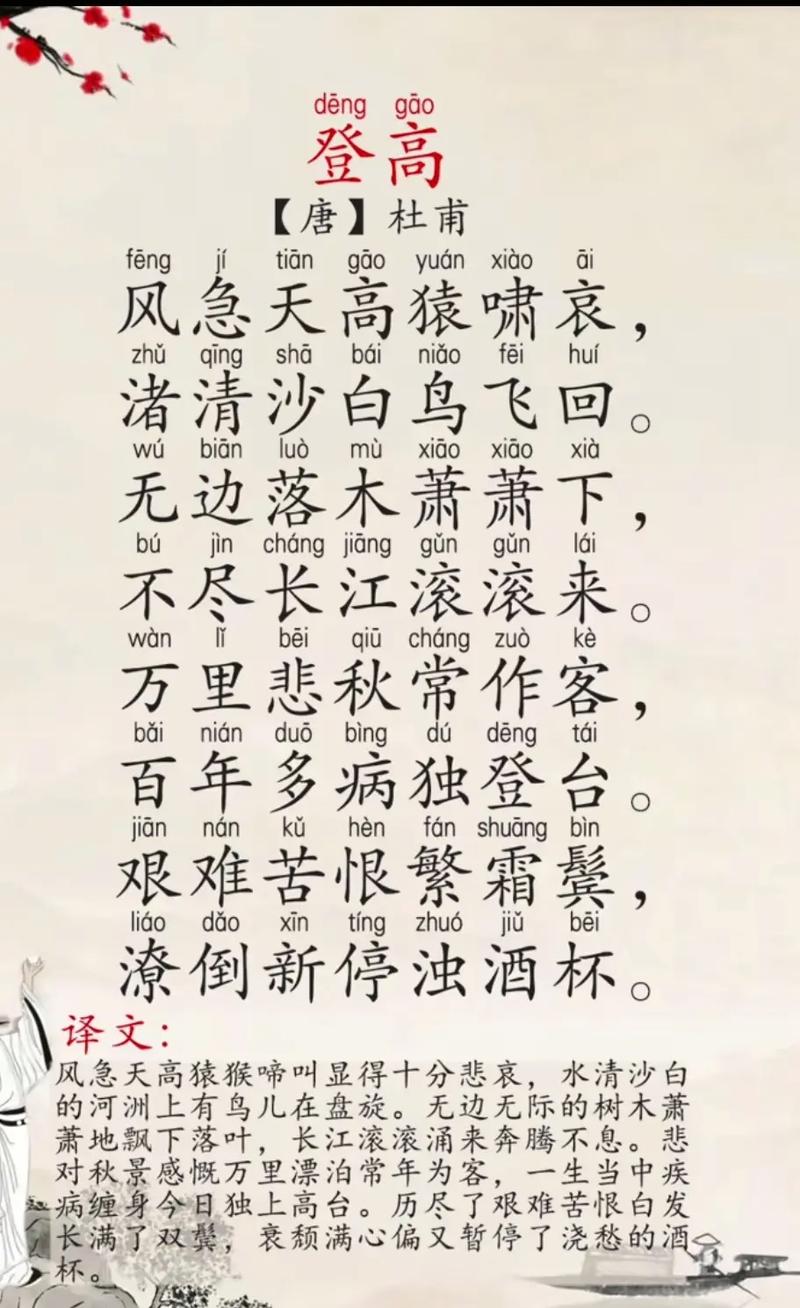 dēng gāo
登高
【唐】杜甫
fēng jí tiān gāo yuán xiào āi
风急天高猿啸哀，
zhǔ qīng shā bái niǎo fēi huí
渚清沙白鸟飞回。
wú biān luò mù xiāo xiāo xià
无边落木萧萧下，
bú jìn cháng jiāng gǔn gǔn lái
不尽长江滚滚来。
wàn lǐ bēi qiū cháng zuò kè
万里悲秋常作客，
bǎi nián duō bìng dú dēng tái
百年多病独登台。
jiān nán kǔ hèn fán shuāng bìn
艰难苦恨繁霜鬓，
liáo dǎo xīn tíng zhuó jiǔ bēi
潦倒新停浊酒杯。
译文：
风急天高猿猴啼叫显得十分悲哀，水清沙白
的河洲上有鸟儿在盘旋。无边无际的树木萧
萧地飘下落叶，长江滚滚涌来奔腾不息。悲
对秋景感慨万里漂泊常年为客，一生当中疾
病缠身今日独上高台。历尽了艰难苦恨白发
长满了双鬓，衰颓满心偏又暂停了浇愁的酒
杯。